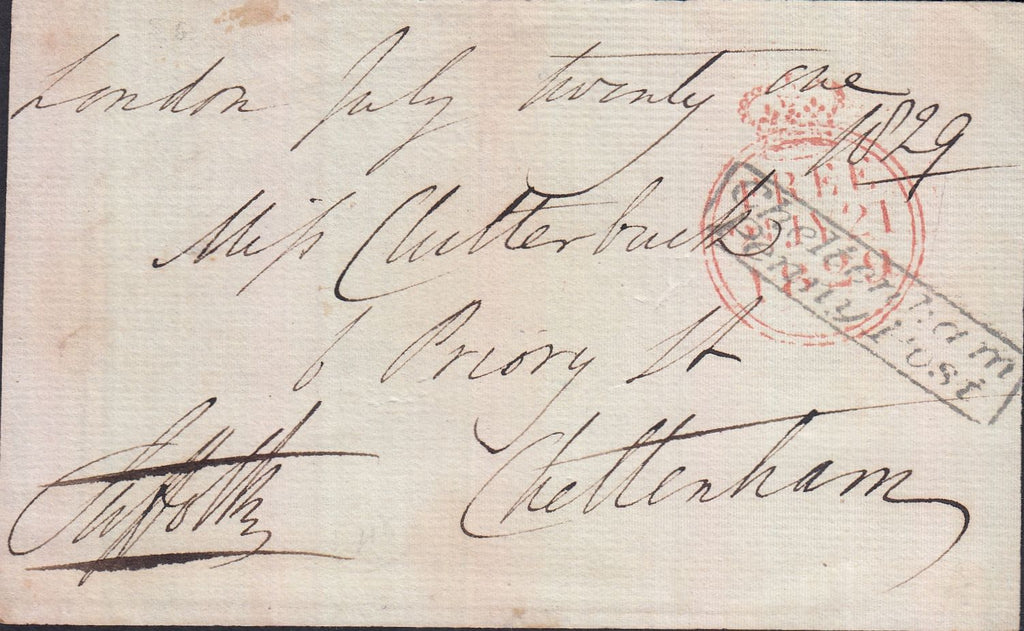 London July twenty one
1829
Miss Clutterbuck
6 Priory St
Cheltenham
Suffolk
FREE
21 JY 21
1829
Cheltenham
Penny Post